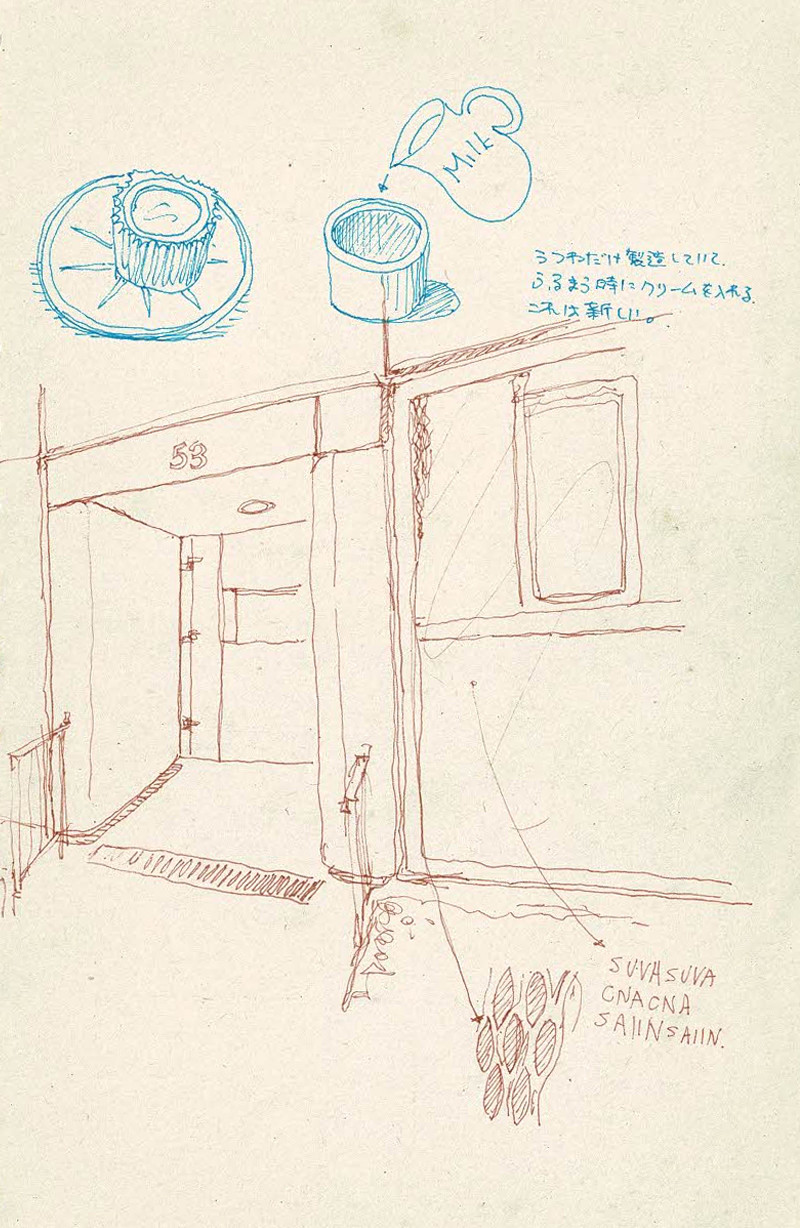 Milk
うつわだけ製造していて、
ふるまう時にクリームを入れる。
これは新しい。
53
SUVASUVA
CNACNA
SAIINSAIIN.